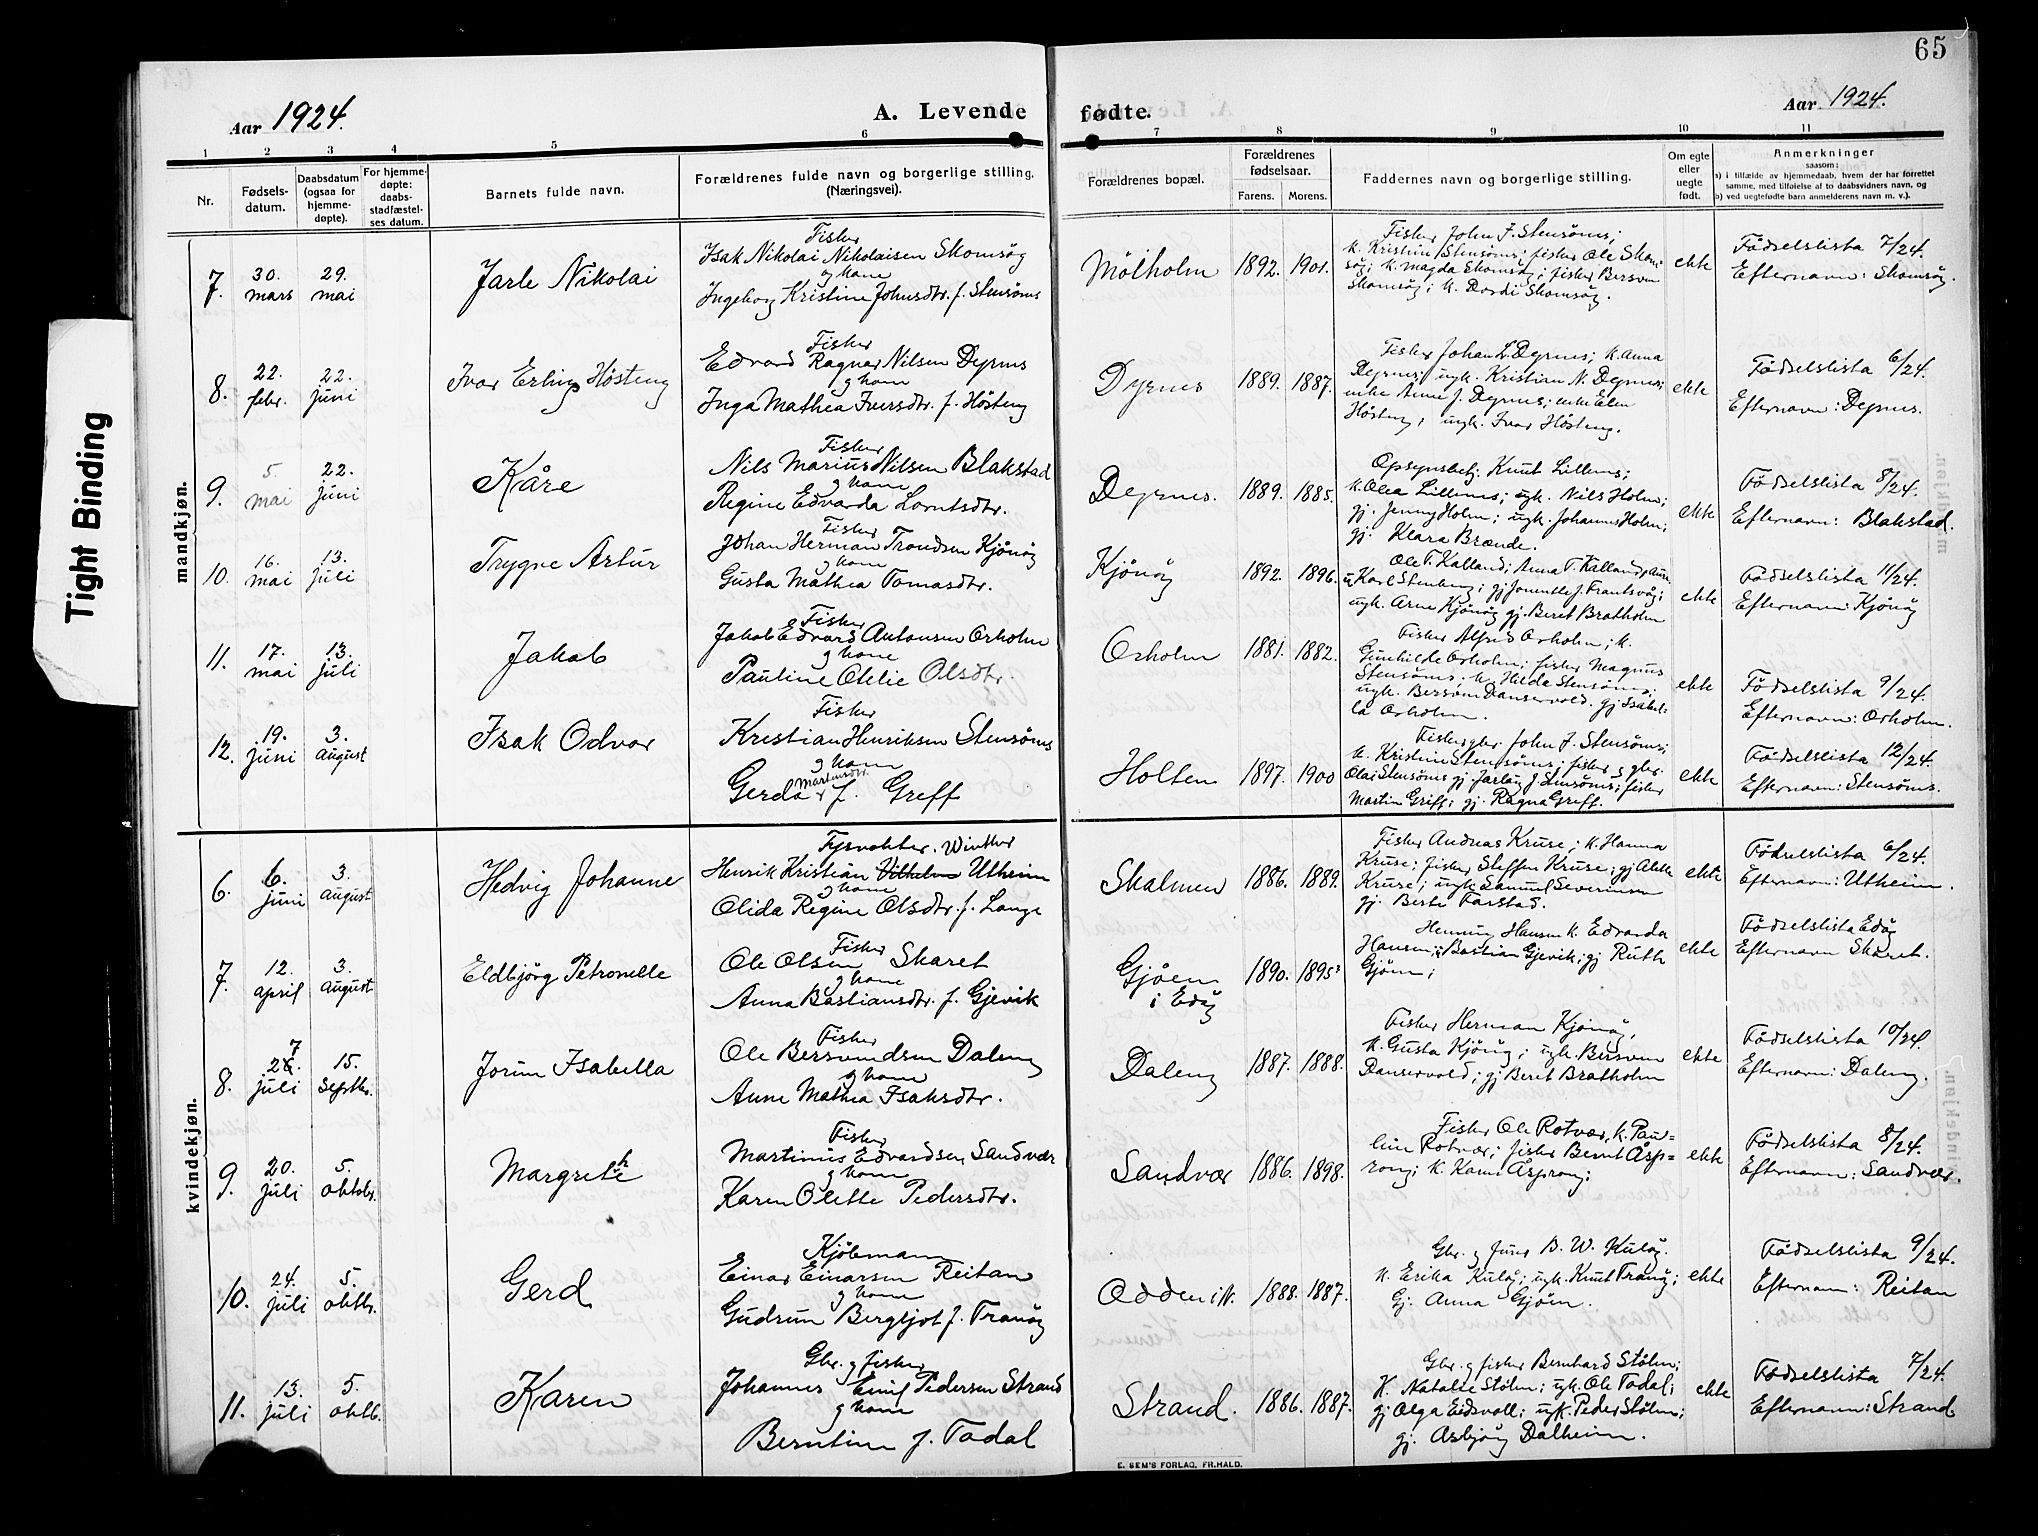 65
Aar 1924.
A. Levende
fødte.
Aar 1924.
1 2 3 4 5 6
7 8 9 10 11
Nr.
Fødsels-
datum.
Daabsdatum
(ogsaa for
hjemme-
døpte).
For hjemme-
døpte:
daabs-
stadfæstel-
ses datum.
Barnets fulde navn.
Forældrenes fulde navn og borgerlige stilling.
(Næringsvei).
Forældrenes bopæl.
Forældrenes
fødselsaar.
Farens. Morens.
Faddernes navn og borgerlige stilling.
Om egte
eller
uegte
født.
Anmerkninger
saasom:
a) i tilfælde av hjemmedaab, hvem der har forrettet
samme, med tilføielse af to daabsvidners navn, og
b) ved uegtefødte barn anmelderens navn m. v.).
Tight Binding
mandkjøn.
7.
30.
mars
29.
mai
Jarle Nikolai
Fisker
Isak Nikolai Nikolaisen Skomsøg
og kone
Ingeborg Kristine Johnsdtr. f. Stensøms
Mölholm
1892. 1901.
Fisker John J. Stensøms;
k. Kristine Stensøms; fisker Ole Skom-
søg; k. Magda Skomsøg; fisker Bersven
Skomsøg; k. Dordi Skomsøg.
ekte
Födselslista 7/24.
Efternavn: Skomsøg.
8.
22.
febr.
22.
juni
Ivar Erling Høsteng
Fisker
Edvard Ragnar Nilsen Dyrnes
og kone
Inga Mathea Iversdtr. f. Høsteng
Dyrnes
1889. 1887.
Fisker Johan L. Dyrnes; k. Anna
Dyrnes; ugk. Kristian N. Dyrnes;
enke Anne J. Dyrnes; enke Elen
Høsteng; ugk. Ivar Høsteng.
ekte
Födselslista 6/24.
Efternavn: Dyrnes.
9.
5.
mai
22.
juni
Kåre
Fisker
Nils Marius Nilsen Blakstad
og kone
Regine Edvarda Lorntsdtr.
Dyrnes.
1889. 1885.
Opsynsbetj. Knut Lillems;
k. Olea Lillems; ugk. Nils Holm;
gj. Jenny Holm; ugk. Johannes Holm;
gj. Klara Brænde.
ekte
Födselslista 8/24.
Efternavn: Blakstad.
10.
16.
mai
13.
juli
Trygve Artur
Fisker
Johan Herman Trondsen Kjönøg
og kone
Gusta Mathea Tomasdtr.
Kjönøg
1892. 1896.
Ole T. Kalland; Anna T. Kalland;
Karl Stenberg; gj. J. Frantsvåg;
ugk. Arne Kjönøg gj. Beret Bratholm
ekte
Födselslista 11/24.
Efternavn: Kjönøg
11.
17.
mai
13.
juli
Jakob
Fisker
Jakob Edvard Antonsen Orholm
og kone
Pauline Oleie Olsdtr.
Orholm
1881. 1882.
Fisker Alfred Orholm; k.
Gunhilde Orholm; fisker Magnus
Stensøms; k. Hilda Stensøms;
ugk. Bersven Danservold. gj. Isabel-
la Orholm.
ekte
Födselslista 9/24.
Efternavn: Orholm.
12.
19.
juni
3.
august
Isak Odvar
Fisker
Kristian Henriksen Stensøms
og kone
Gerda Martinsdtr. f. Greff
Holten
1897. 1900
Fisker gbr. John J. Stensøms;
k. Kristine Stensøms; fisker og gbr.
Olai Stensøms gj. Jarlåug J. Stensøms; fisker
Martin Griff; gj. Ragna Greff.
ekte
Födselslista 12/24.
Efternavn: Stensøms.
kvindekjøn.
6.
6.
juni
3.
august
Hedvig Johanne
Fyrvokter. Winther
Henrik Kristian Vilhelm Utheim
og kone
Olida Regine Olsdtr. f. Lange
Skalmen
1886. 1889.
Fisker Andreas Kruse; k. Hanna
Kruse; fisker Steffen Kruse; gj. Alette
Kruse; ugk. Samuel Severinsen
gj. Berte Farstad.
ekte
Födselslista 6/24.
Efternavn: Utheim.
7.
12.
april
3.
august
Eldbjörg Petronelle
Fisker
Ole Olsen Skaret
og kone
Anna Bastiansdtr. f. Gjevik
Gjöen
i Edöy
1890. 1895?
Henning Hansen k. Edvarda
Hansen; Bastian Gjevik; gj. Ruth
Gjöen;
ekte
Födselslista Edöy
Efternavn Skaret.
8.
7
26.
juli
15.
septbr.
Jorun Isabella
Fisker
Ole Bersvendsen Daleng
og kone
Anne Mathea Isaksdtr.
Daleng
1887. 1888.
Fisker Herman Kjönøg,
k. Gusta Kjönøg; ugk. Bersven
Danservold; gj. Beret Bratholm
ekte
Födselslista 10/24.
Efternavn: Daleng.
9.
20.
juli
5.
oktobr.
Margrethe
Fisker
Martinus Edvardsen Sandvær
og kone
Karen Olette Pedersdtr.
Sandvær
1886. 1898.
Fisker Ole Rotvær, k. Pau-
line Rotvær; fisker Bernt Åsp-
rong; k. Karen Åsprong;
ekte
Födselslista 8/24.
Efternavn: Sandvær.
10.
24.
juli
5.
oktbr.
Gerd
Kjöbmann
Einar Einarsen Reitan
og kone
Gudrun Bergljot f. Tranöy
Odden i N.
1888. 1887.
Gbr. og snr B. W. Kulöy.
k. Erika Kulöy; ugk. Knut Tranöy;
Gj. Anna Gjöen.
ekte
Födselslista 9/24.
Efternavn: Reitan
11.
13.
juli
5.
oktb.
Karen
Gbr. og fisker
Johannes Emil Pedersen Strand
og kone
Berntine f. Todal
Strand.
1886. 1887.
Gbr. og fisker Bernhard Stölen;
k. Natalie Stölen; ugk. Ole Todal;
gj. Olga Eidsvoll; ugk. Peder Stölen;
gj. Asbjörg Dalheim.
ekte
Födselslista 7/24.
Efternavn: Strand
E. SEM'S FORLAG, FR.HALD.